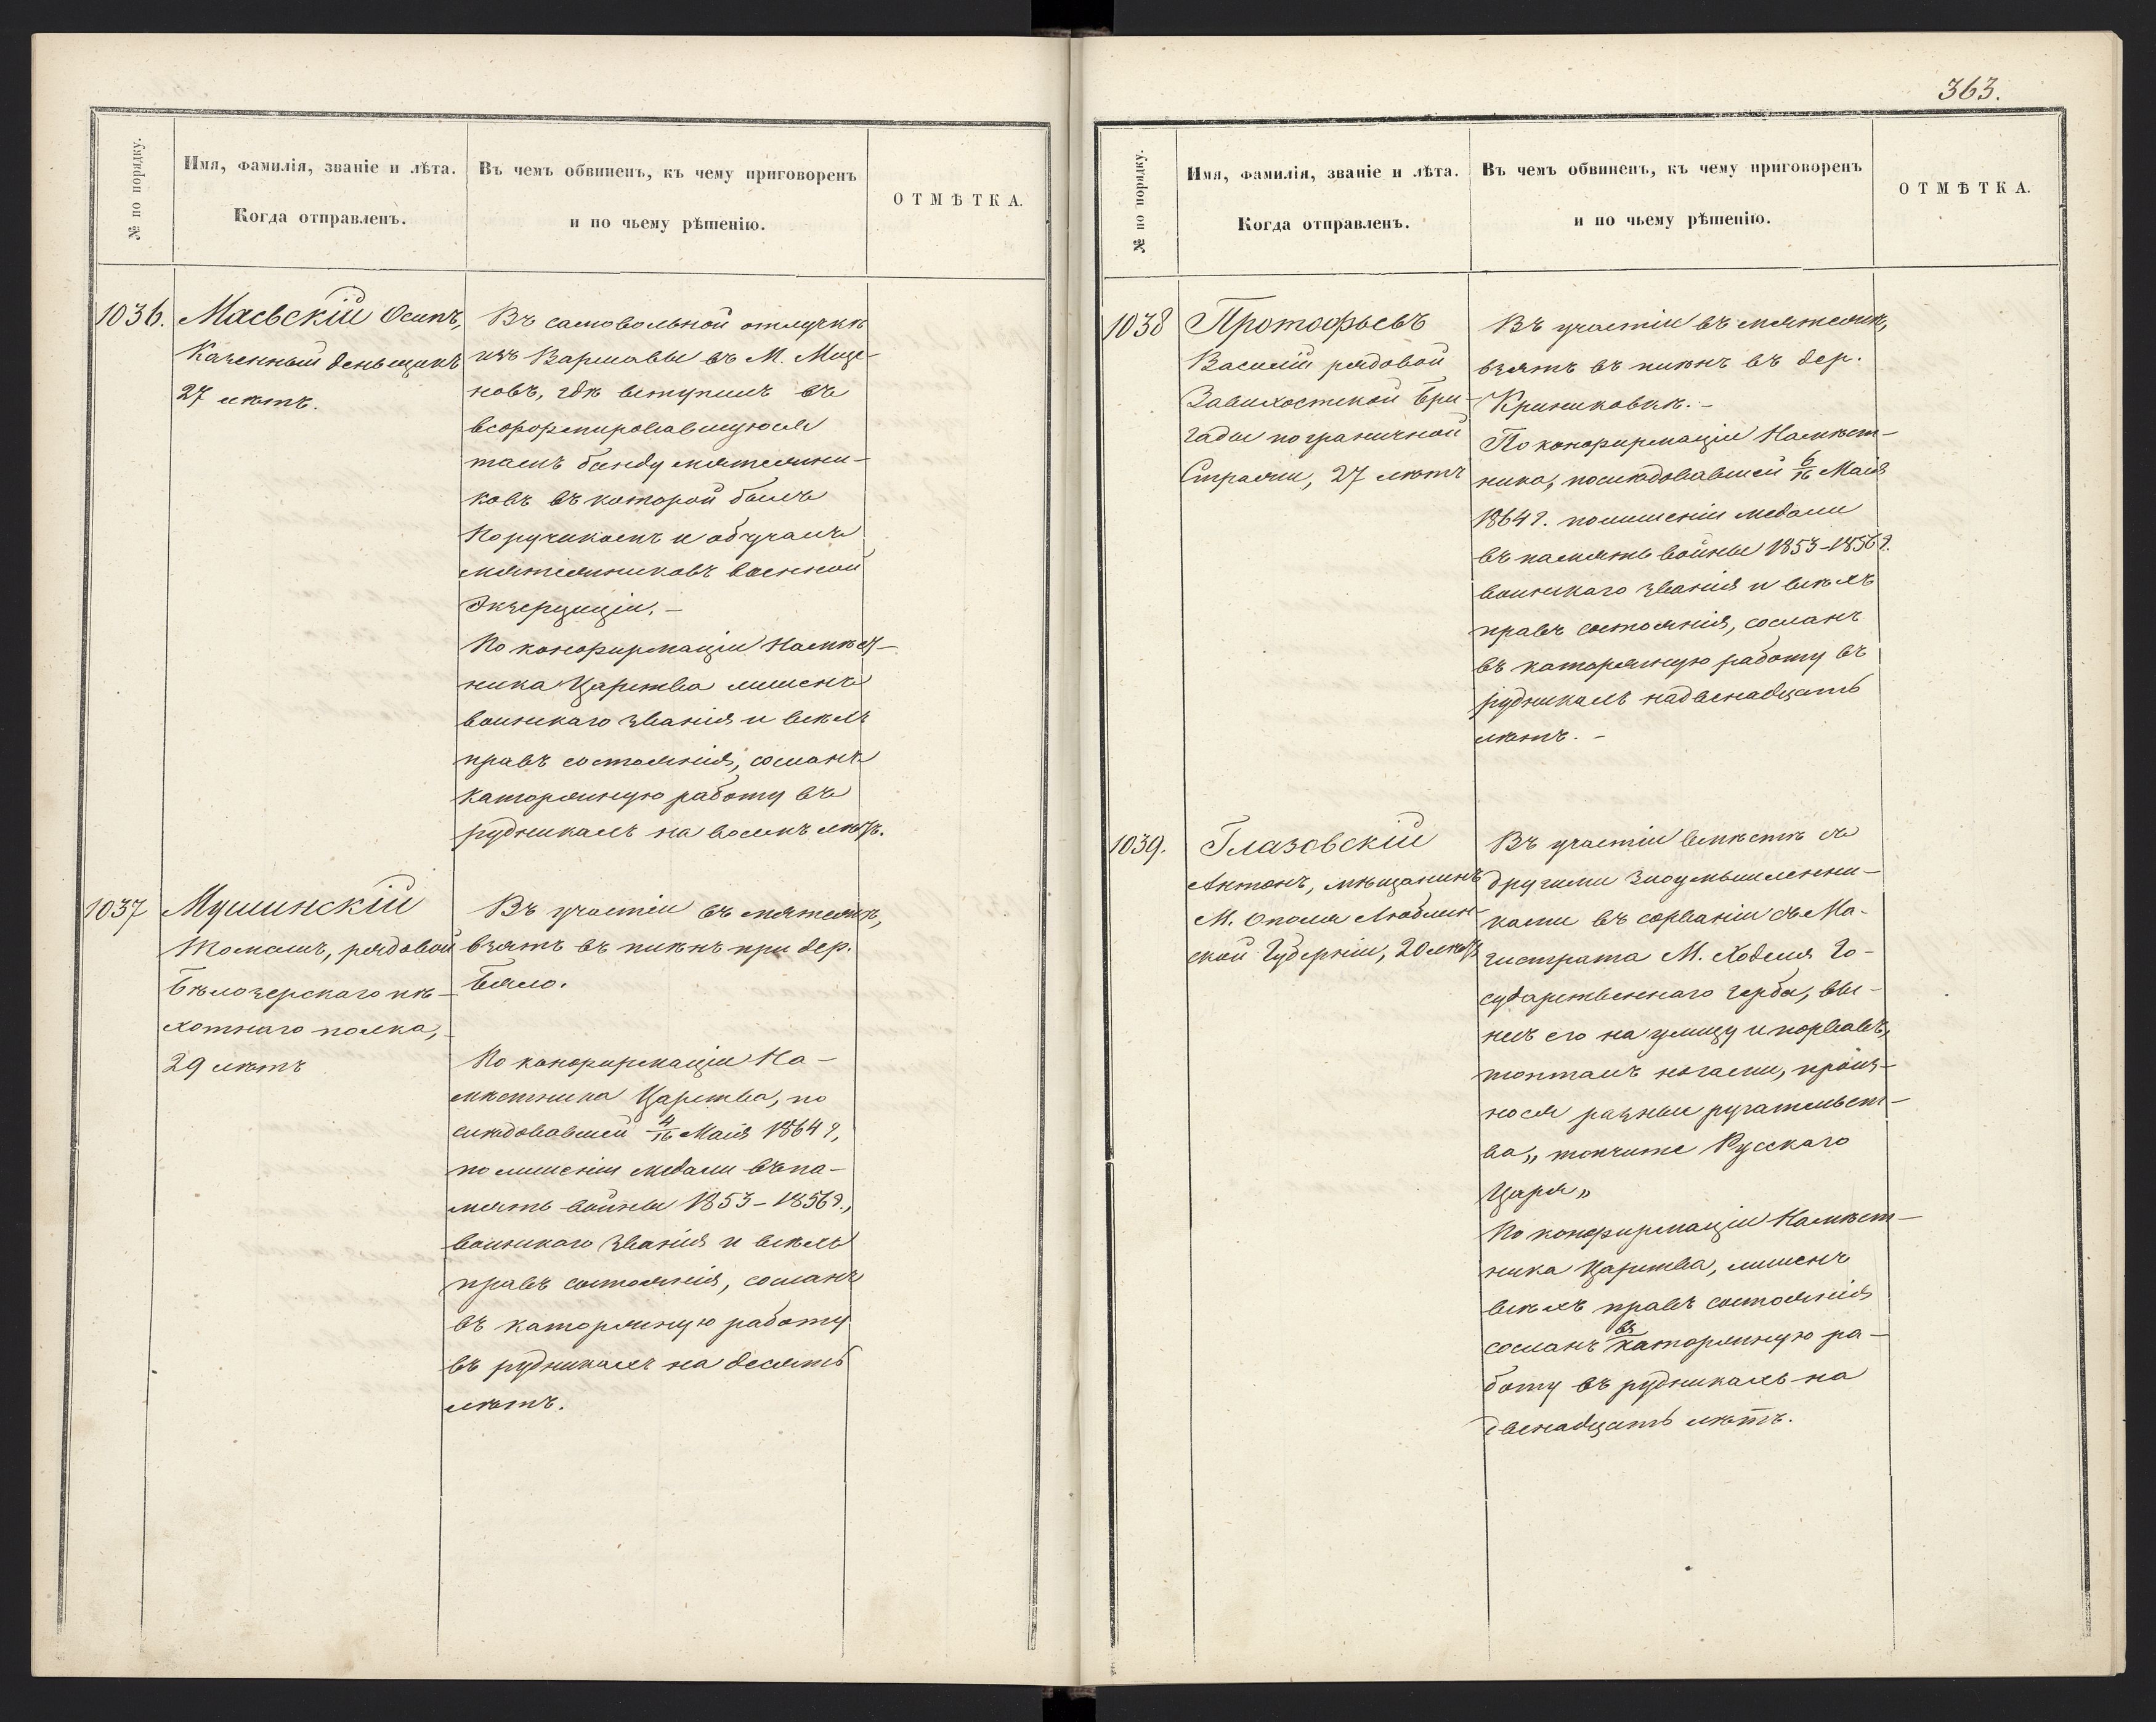 363.
№ по порядку.
Имя, фамилія, званіе и лѣта.
Когда отправленъ.
Въ чемъ обвиненъ, къ чему приговоренъ
и по чьему рѣшенію.
ОТМѢТКА.
1036.
Маевскій Осипъ,
Казенный деньщикъ
27 лѣтъ.
Въ самовольной отлучкѣ
изъ Варшавы въ М.
новъ, гдѣ вступилъ въ
всформировавшуюся
тамъ банду мятежни-
ковъ въ которой былъ
Поручикомъ и обучалъ
мятежниковъ военной
Экзерциціи. –
По конфирмаціи Намѣст-
ника Царства лишенъ
воинскаго званія и всѣхъ
правъ состоянія, сосланъ
каторжную работу въ
рудникахъ на восемь лѣтъ.
1037
Мушинскій
Томашъ, рядовой
Бѣлозерскаго пѣ-
хотнаго полка,
29 лѣтъ
Въ участіи въ мятежѣ,
взятъ въ плѣнъ при дер.
Бяло.
По конфирмаціи На-
мѣстника Царства, по
слѣдовавшей 4/16 Маія 1864 г.,
по лишеніи медали въ па-
мять войны 1853–1856 г.,
воинскаго званія и всѣхъ
правъ состоянія, сосланъ
въ каторжную работу
въ рудникахъ на десять
лѣтъ.
№ по порядку.
Имя, фамилія, званіе и лѣта.
Когда отправленъ.
Въ чемъ обвиненъ, къ чему приговоренъ
и по чьему рѣшенію.
ОТМѢТКА.
1038
Протофьевъ
Василій рядовой
Завихостской Бри-
гады пограничной
Стражи, 27 лѣтъ
Въ участіи въ мятежѣ,
взятъ въ плѣнъ въ дер.
Крыниковкѣ. –
По конфирмаціи Намѣст-
ника, послѣдовавшей 6/16 Маія
1864 г. по лишеніи медали
въ память войны 1853–1856 г.
воинскаго званія и всѣхъ
правъ состоянія, сосланъ
въ каторжную работу въ
рудникахъ на двенадцать
лѣтъ. –
1039.
Глазовскій
Антонъ, мѣщанинъ
М. Ополя Люблин-
ской Губерніи, 20 лѣтъ
Въ участіи вмѣстѣ съ
другими злоумышленни-
ками въ сорваніи съ Ма-
гистрата М. Ходеля Го-
сударственнаго герба, вы-
несъ его на улицу и порвавъ,
топталъ ногами, произ-
нося разныя ругательст-
ва „топчите Русскаго
Царя„
По конфирмаціи Намѣст-
ника Царства, лишенъ
всѣхъ правъ состоянія
сосланъ въ каторжную ра-
боту въ рудникахъ на
двенадцать лѣтъ.